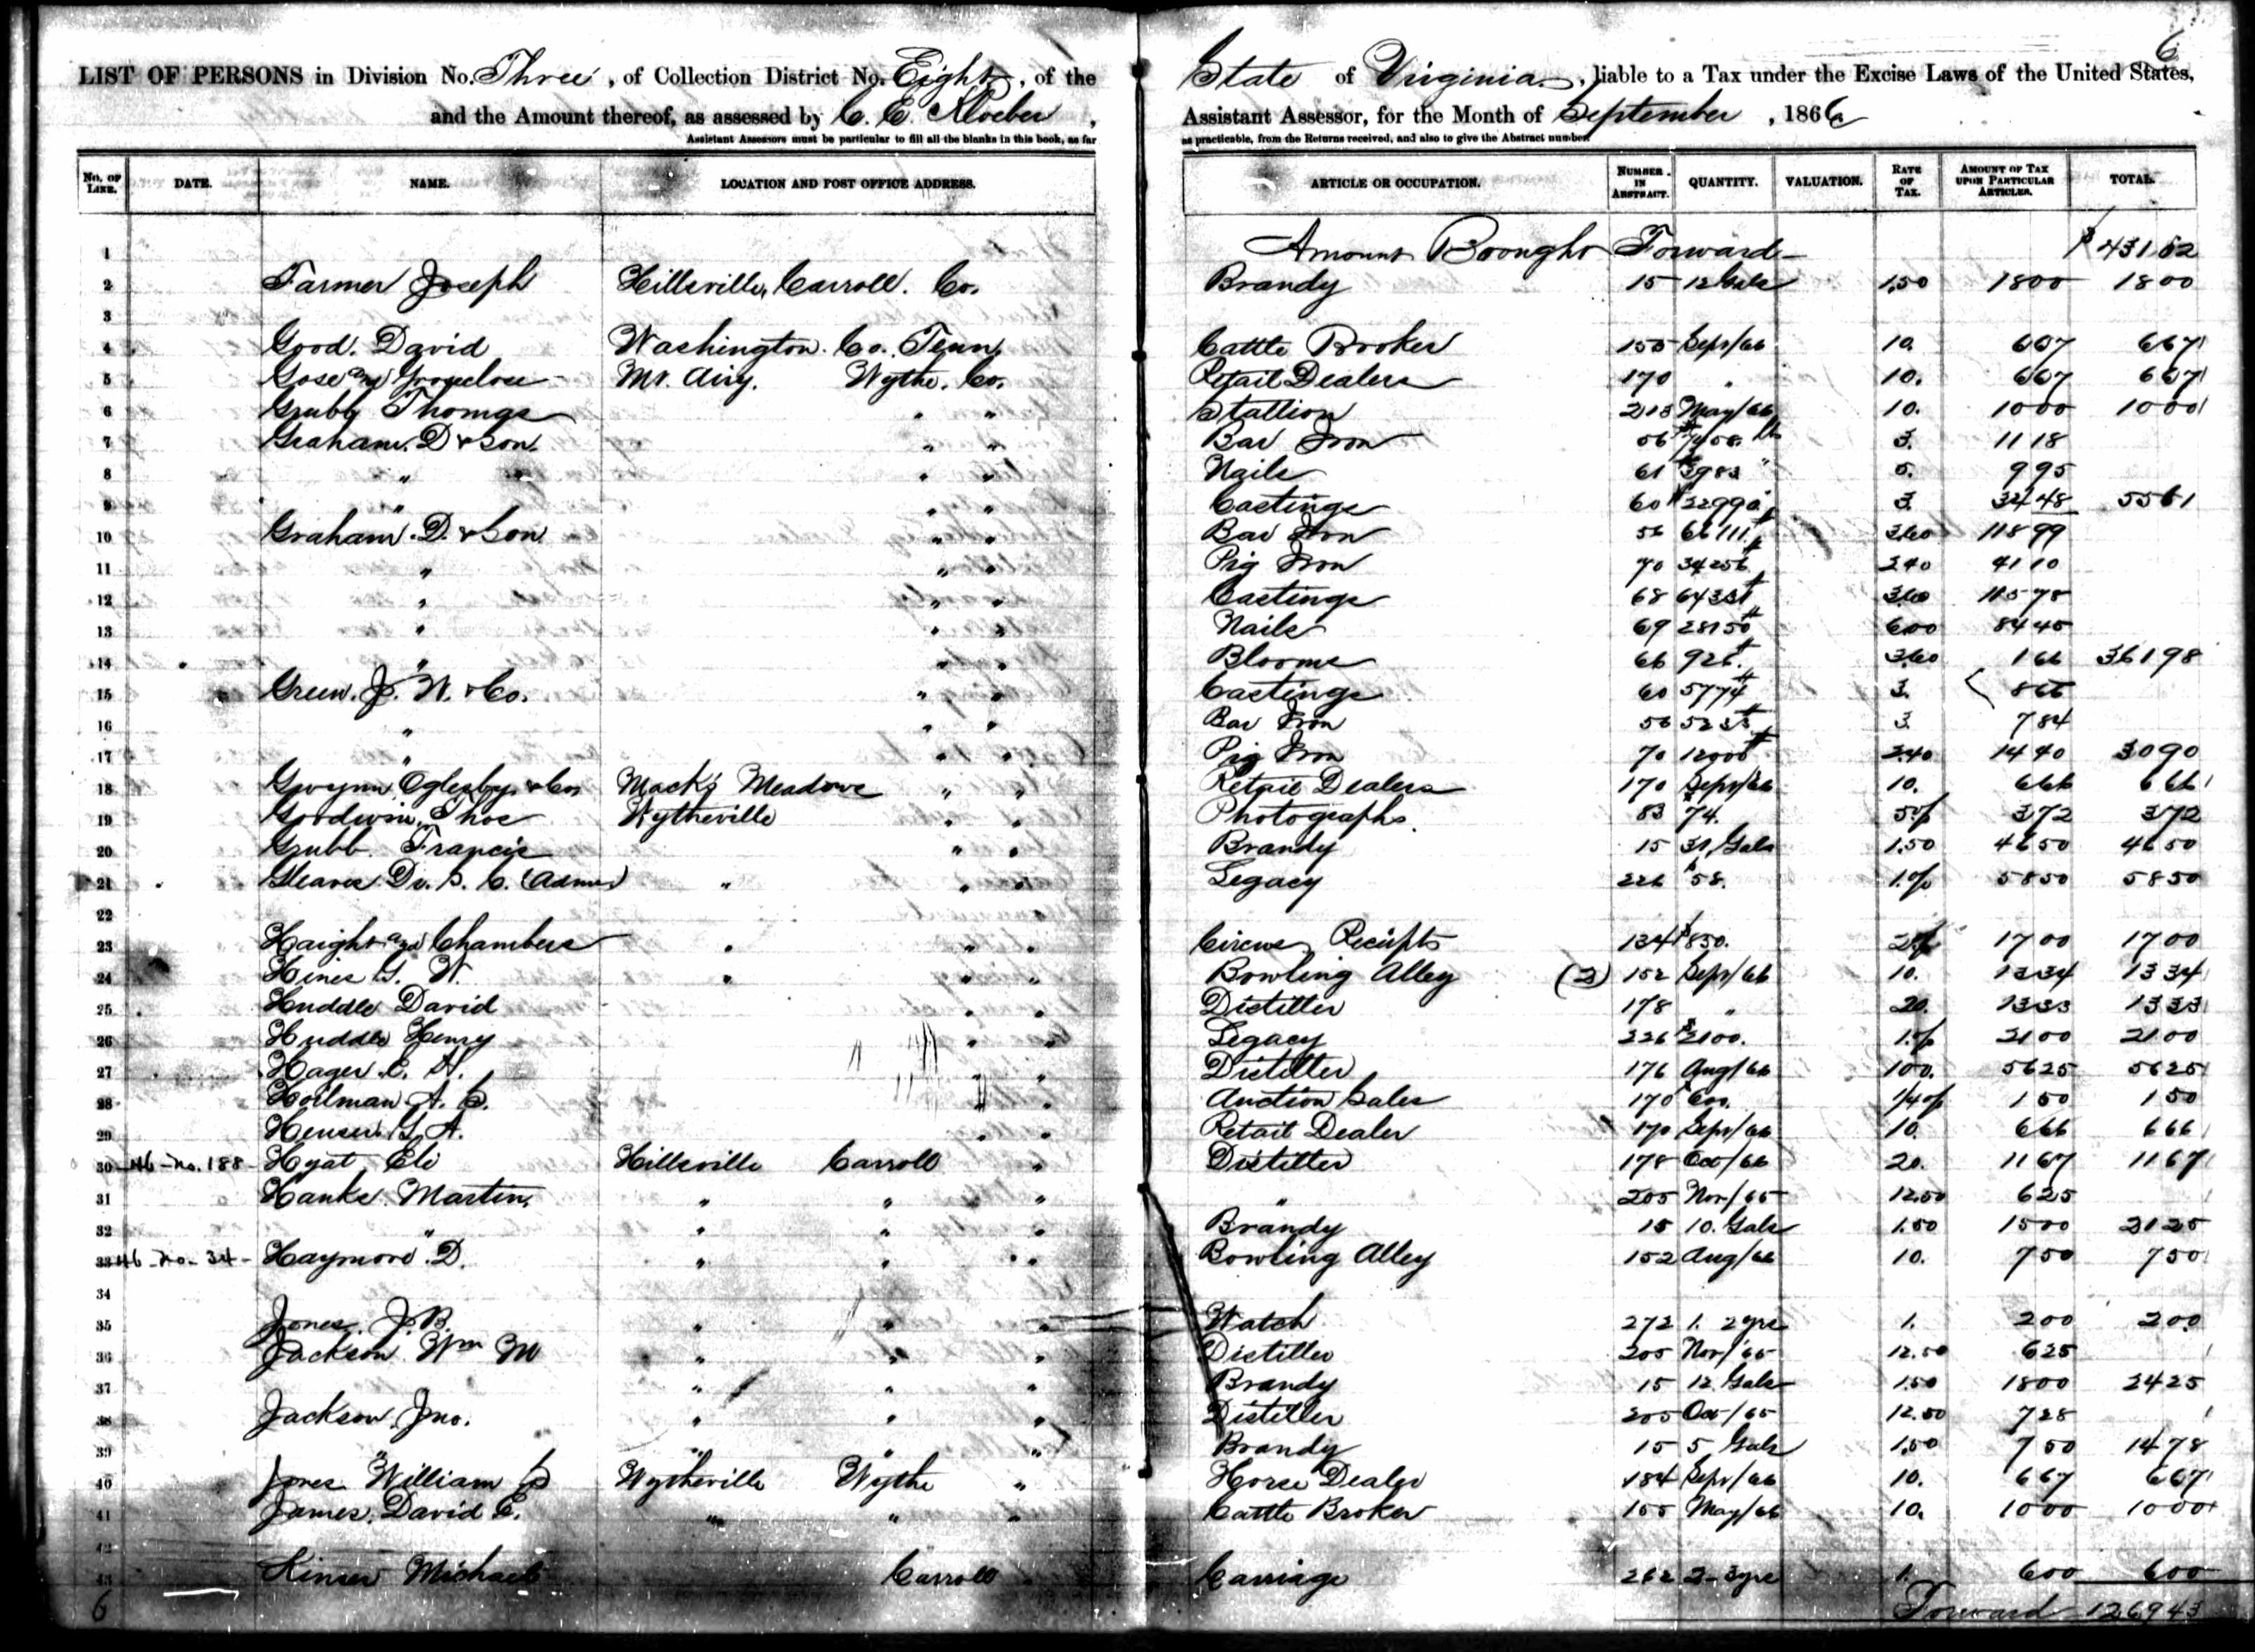 6
LIST OF PERSONS in Division No. Three, of Collection District No. Eight, of the State of Virginia, liable to a Tax under the Excise Laws of the United States,
and the Amount thereof, as assessed by C. E. Kloeber, Assistant Assessor, for the Month of September, 1866
Assistant Assessors must be particular to fill all the blanks in this book, as far as practicable, from the Returns received, and also to give the Abstract number.
No. OF LINE. DATE. NAME. LOCATION AND POST OFFICE ADDRESS. ARTICLE OR OCCUPATION. NUMBER IN ABSTRACT. QUANTITY. VALUATION. RATE OF TAX. AMOUNT OF TAX UPON PARTICULAR ARTICLES. TOTAL.
1 Amount Brought Forward $ 431 52
2 Farmer Joseph Hillsville, Carroll. Co. Brandy 15 12 Gals 1.50 18 00 18 00
3
4 Good. David Washington. Co. Tenn. Cattle Broker 155 Sept/66 10. 6 67 6 67
5 Gose and Mt. Airy. Wythe. Co. Retail Dealers 170 " 10. 6 67 6 67
6 Grubb Thomas " " Stallion 213 May/66 10. 10 00 10 00
7 Graham. D & Son. " " Bar Iron 56 lbs 3. 11 18
8 " " " Nails 61 3983 " 5. 9 95
9 " " " Castings 60 3. 32 48 55 61
10 Graham. D. & Son " " Bar Iron 56 66111 # 3.60 118 99
11 " " " Pig Iron 70 34256 # 2.40 41 10
12 " " " Castings 68 3.60 115 78
13 " " " Nails 69 28150 # 6.00 84 45
14 " " " Blooms 66 926. # 3.60 1 66 361 98
15 Green. J. W. & Co. " " Castings 60 5774 # 3. 8 66
16 " " " Bar Iron 56 # 3. 7 84
17 " " " Pig Iron 70 12000 # 2.40 14 40 30 90
18 Gwynn, Oglesby & Co. Mack's Meadows " " Retail Dealers 170 Sept/66 10. 6 66 6 66
19 Goodwin, Thos Wytheville " " Photographs. 83 $ 74. 5% 3 72 3 72
20 Grubb Francis " " Brandy 15 31 Gals 1.50 46 50 46 50
21 Gleaves Dr. S. C. (Admr) " " " Legacy 226 $ 58. 1.% 58 50 58 50
22
23 Haight and Chambers " " " Circus Receipts 134 $ 850. 2% 17 00 17 00
24 Hines G. W. " " " Bowling Alley (2) 152 Sept/66 10. 13 34 13 34
25 Huddle David " " Distiller 178 " 20. 13 33 13 33
26 Huddle Henry " " Legacy 226 $ 2100. 1.% 21 00 21 00
27 Hager. C. H. " " Distiller 176 Aug/66 100. 56 25 56 25
28 A. S. " " Auction Sales 170 1/4 of 1 50 1 50
29 G. A. " " Retail Dealer 170 Sept/66 10. 6 66 6 66
30 46 - No. 188 - Hyat Eli Hillsville Carroll " Distiller 178 Oct/66 20. 11 67 11 67
31 Hanks. Martin. " " " " 205 Nov/65 12.50 6 25
32 " " " " Brandy 15 10. Gals 1.50 15 00 21 25
33 46 - No - 34 - Haymore. D. " " " Bowling Alley 152 Aug/66 10. 7 50 7 50
34
35 Jones. J. B. " " " Watch 272 1. 2 yrs 1. 2 00 2 00
36 Jackson Wm M " " " Distiller 205 Nov/65 12.50 6 25
37 " " " Brandy 15 12 Gals 1.50 18 00 24 25
38 Jackson. Jno. " " " Distiller 205 Oct/65 12.50 7 28
39 " " " " Brandy 15 5 Gals 1.50 7 50 14 78
40 Jones William S Wytheville Wythe " Horse Dealer 184 Sept/66 10. 6 67 6 67
41 James, David E. " " " Cattle Broker 155 May/66 10. 10 00 10 00
42
43 Kinser Michael Carroll Carriage 262 2 - 3 yrs 1. 6 00 6 00
6 Forward 1269 43